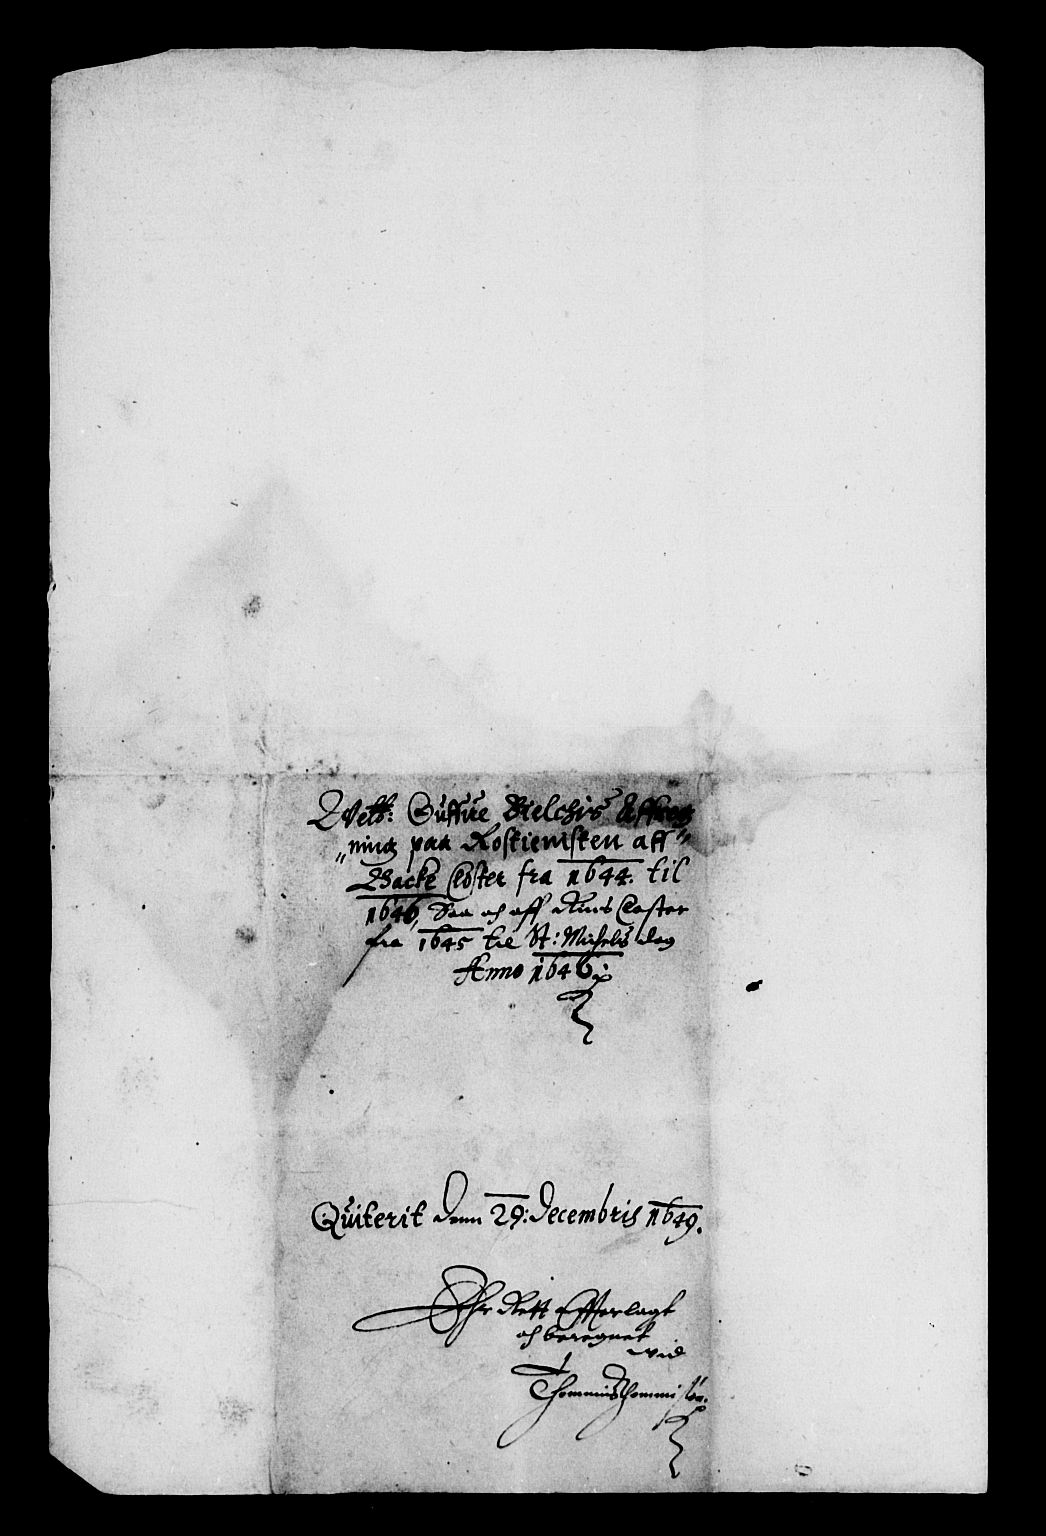 Welb: Guffue Bielchis Affreg
"ning paa Rostienisten aff"
Backe Closter fra 1644. til
1646, Saa och aff Rins Closter
fra 1645 til St: Michels dag
Anno 1646:
Quiterit denn 29: decembris 1649.
Ehr Rett Efterlagt
och beregnet
wid
Thommis Thommisön.